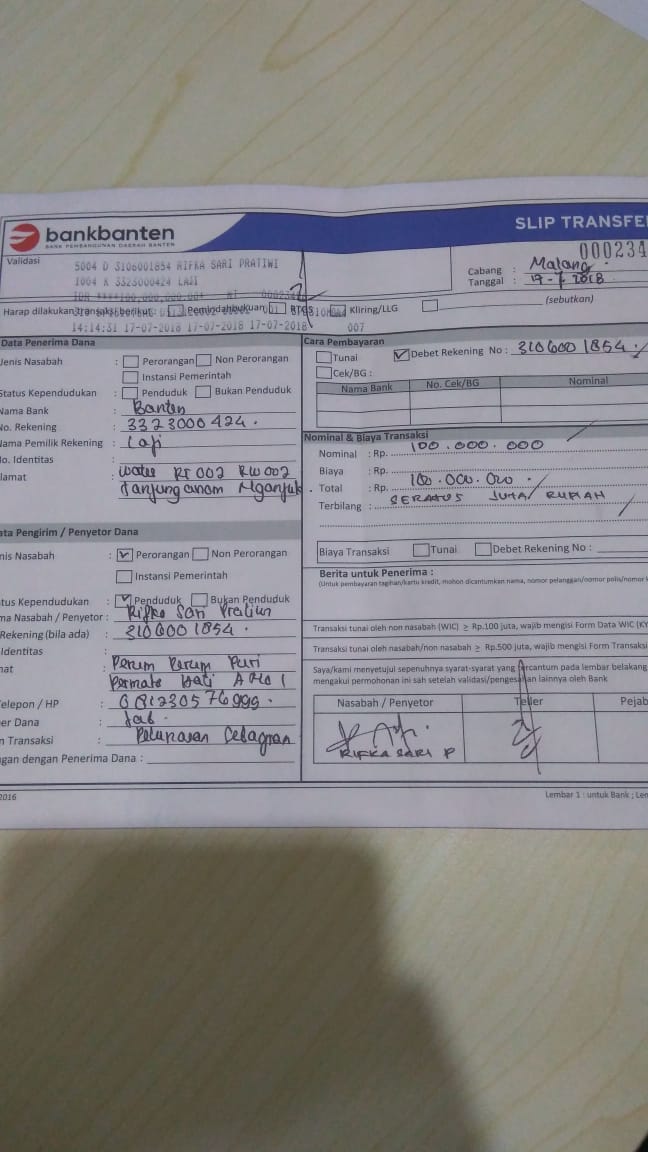 bankbanten
BANK PEMBANGUNAN DAERAH BANTEN
SLIP TRANSFE
Validasi
000234
5004 D 3106001854 RIFKA SARI PRATIWI
1004 K 3323000424 LASI
Cabang : Malang
Tanggal : 17-7 2018
Harap dilakukan transaksi berikut : Pemindahbukuan RTGS Kliring/LLG (sebutkan)
14:14:31 17-07-2018 17-07-2018 17-07-2018 007
Data Penerima Dana
Jenis Nasabah : Perorangan Non Perorangan
Instansi Pemerintah
Status Kependudukan : Penduduk Bukan Penduduk
Nama Bank : Banten
No. Rekening : 3323000424.
Nama Pemilik Rekening :
o. Identitas :
lamat : RT 002 RW 002
Cara Pembayaran
Tunai Debet Rekening No : 3106001854.
Cek/BG :
Nama Bank No. Cek/BG Nominal
Nominal & Biaya Transaksi
Nominal : Rp. 100.000.000
Biaya : Rp.
Total : Rp. 100.000.000
Terbilang : SERATUS JUTA RUPIAH
Biaya Transaksi Tunai Debet Rekening No :
Berita untuk Penerima :
(Untuk pembayaran tagihan/kartu kredit, mohon dicantumkan nama, nomor pelanggan/nomor polis/nomor k
ata Pengirim / Penyetor Dana
nis Nasabah : Perorangan Non Perorangan
Instansi Pemerintah
tus Kependudukan : Penduduk Bukan Penduduk
ma Nasabah / Penyetor : Rifka Sari Pratiwi
Rekening (bila ada) : 3106001854.
Identitas :
mat : Perum Perum Puri
Permata
elepon / HP : 081230576999.
er Dana :
n Transaksi : Pelunasan
gan dengan Penerima Dana :
Transaksi tunai oleh non nasabah (WIC) ≥ Rp.100 juta, wajib mengisi Form Data WIC (KY
Transaksi tunai oleh nasabah/non nasabah ≥ Rp.500 juta, wajib mengisi Form Transaksi
Saya/kami menyetujui sepenuhnya syarat-syarat yang tercantum pada lembar belakang
mengakui permohonan ini sah setelah validasi/pengesahan lainnya oleh Bank
Nasabah / Penyetor Teller Pejab
RIFKA SARI P
2016
Lembar 1 : untuk Bank ; Lem